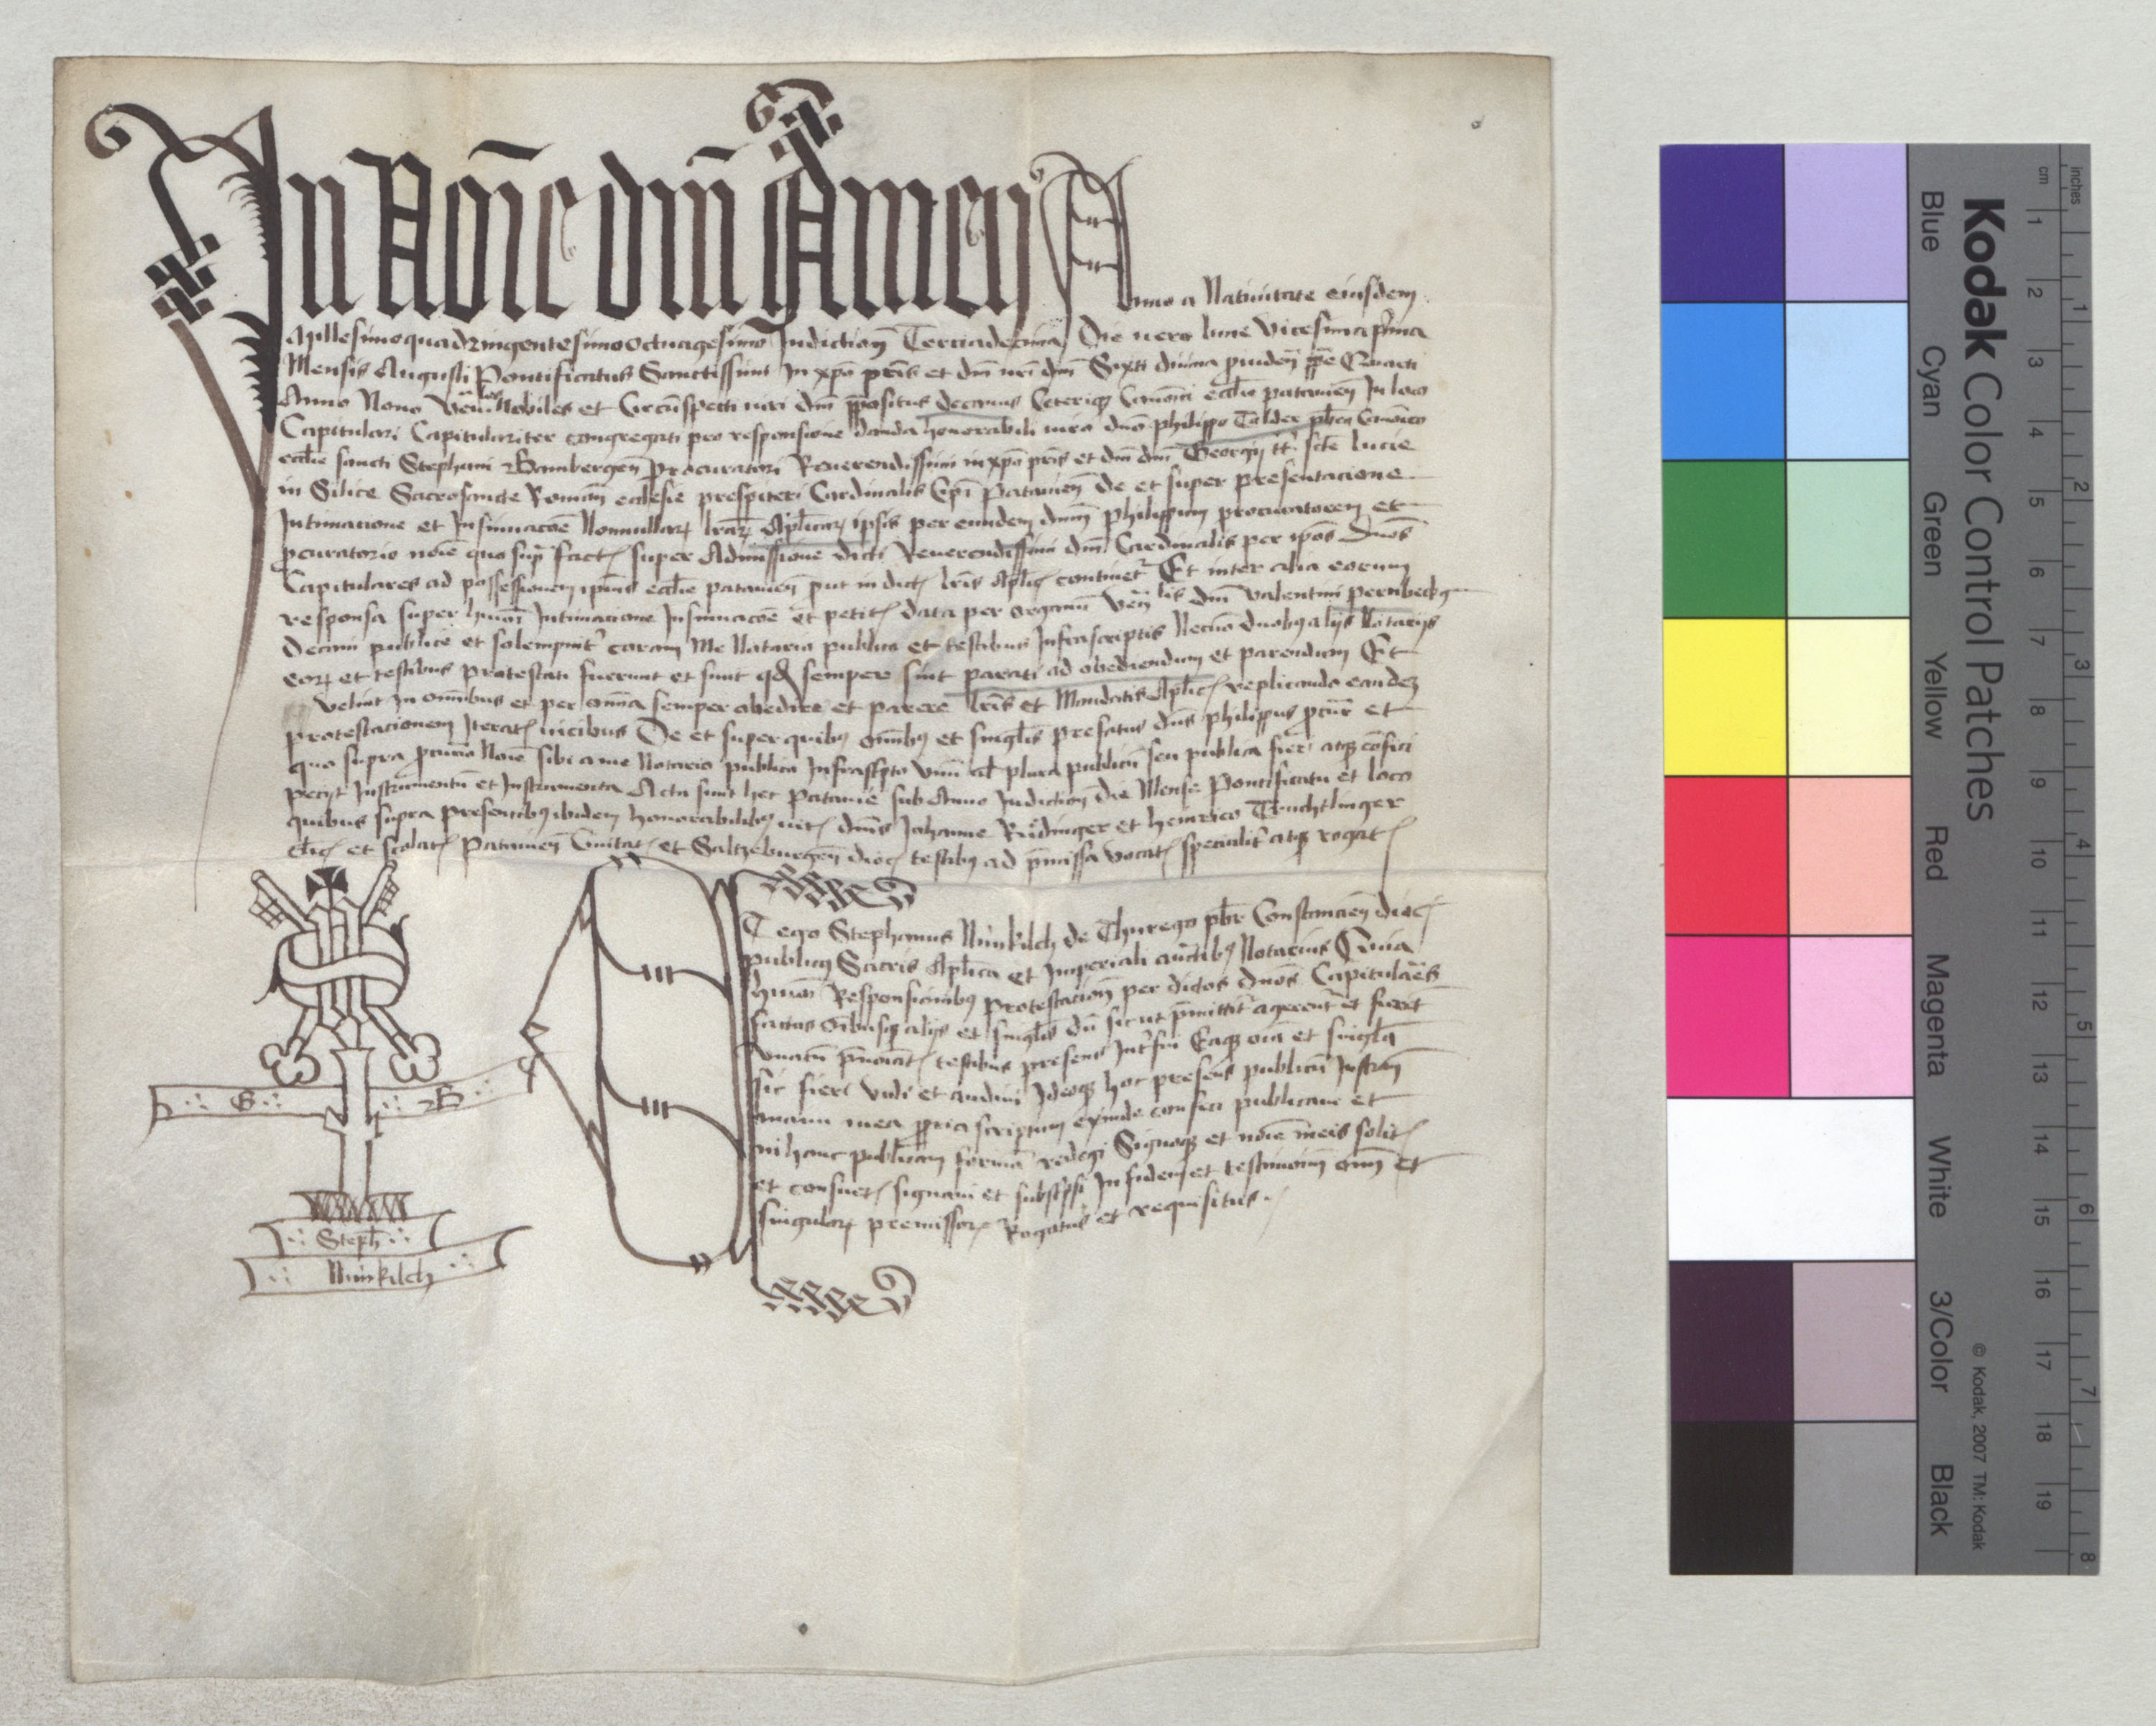 In No͞ie d͞ni Amen Anno a Natiuitate eiusdem
Millesimoquadringentesimooctuagesimo Indiction̄ Terciadecima Die uero lune vicesimaprima
Mensis Augusti Pontificatus Sanctissimi In xp͞o pr͞is et dn͞i nr͞i dn͞i Sixti diuina prouiden̄ p͞pe Quarti
Anno Nono Ven̄les Nobiles et Circu͞specti uiri dn͞i p͞positus decanus Ceteriq; Cano͞ici eccl͞ie patauien̄ In loco
Capitulari Capitulariter congregati pro responsione danda honorabili uiro dn͞o philippo Talder pb͞ro Cano͞ico
eccl͞ie sancti Stephani Bambergen̄ procuratori Reuerendissimi in xp͞o pr͞is et dn͞i dn͞i Georgij tt͞ sc͞te lucie
in Silice Sacrosancte Roman͞ ecclesie prespiteri Cardinalis Ep͞i Patauien̄ de et super presentacione
Intimacione et Insinuaco͞e Nonnullar͞ lr͞ar͞ Apl͞icar͞ ipsis per eundem dn͞m philippum procuratorem et
p͞curatorio no͞ie quo sup͞ fact͞ super Admissione dicti Reuerendissimi dn͞i Cardinalis per ip͞os dn͞os
Capitulares ad possessionem ip͞ius eccl͞ie patauien̄ put in dict͞ lr͞is Apl͞ic͞ continet͞ Et inter alia eorum
responsa super hm͞oi Intimacione Insinuaco͞e et petit͞ data per organu͞ Ven̄lis dn͞i valentini pernbeckh
decani publice et solempnit͞ coram Me Notario publico et testibus Infrascriptis Necno͞ duobus alijs Notarijs
eor͞ et testibus protestati fuerunt et sunt q͞d semper sint parati ad obediendum et parendum Et
velint In om͞ibus et per om͞ia semper obedire et parere lr͞is et Mandatis Apl͞ic͞ replicando eandez
protestacionem Iterat͞ uicibus De et super quibus om͞ibus et singul͞is prefatus dn͞s philippus p͞cur͞ et
quo supra p͞curio No͞ie sibi a me Notario publico Infrasc͞pto vnu͞ al͞ plura publicu͞ seu publica fieri atq; co͞fici
petijt Instrumentu͞ et Instrumenta Acta sunt hec Patauie sub Anno Indiction̄ die Mense Pontificatu et loco
quibus supra presentibus ibidem honorabilibus uir͞ dn͞is Johanne Rüdinger et heinrico Truchtlinger
cl͞ic͞ et scolar͞ Patauien̄ Ciuitat͞ et Saltzeburgen̄ dioc͞ testibus ad p͞missa vocat͞ specialit͞ atq; rogat͞
Et ego Stephanus Nünkilch de Thurego pb͞r Constancien̄ dioc͞
publicus Sacris Apl͞ica et Imperiali auct͞ibus Notarius Quia
hm͞oi Responsionibus protestacion͞ per dictos dn͞os Capitular͞es
factas o͞ibusq; alijs et singul͞is du͞ sicut p͞mittit͞ agerent͞ et fieret
vnacu͞ p͞noi͞at͞ testibus presens int͞fui Eaq; o͞ia et singul͞a
sic fieri vidi et audiui Ideoq; hoc presens publicu͞ Instr͞m
manu mea p͞pria scriptum exinde confeci publicaui et
in hanc publicam forma͞ redegi Signoq; et no͞ie meis solit͞
et consuet͞ signaui et subsc͞psi In fidem et testimoniu͞ om͞i et
singulor͞ premissor͞ Rogatus et requisitus
S B
Steph͞
Nünkilch
Kodak Color Control Patches
Blue Cyan Green Yellow Red Magenta White 3/Color Black
© Kodak, 2007 TM: Kodak
inches 1 2 3 4 5 6 7 8
cm 1 2 3 4 5 6 7 8 9 10 11 12 13 14 15 16 17 18 19